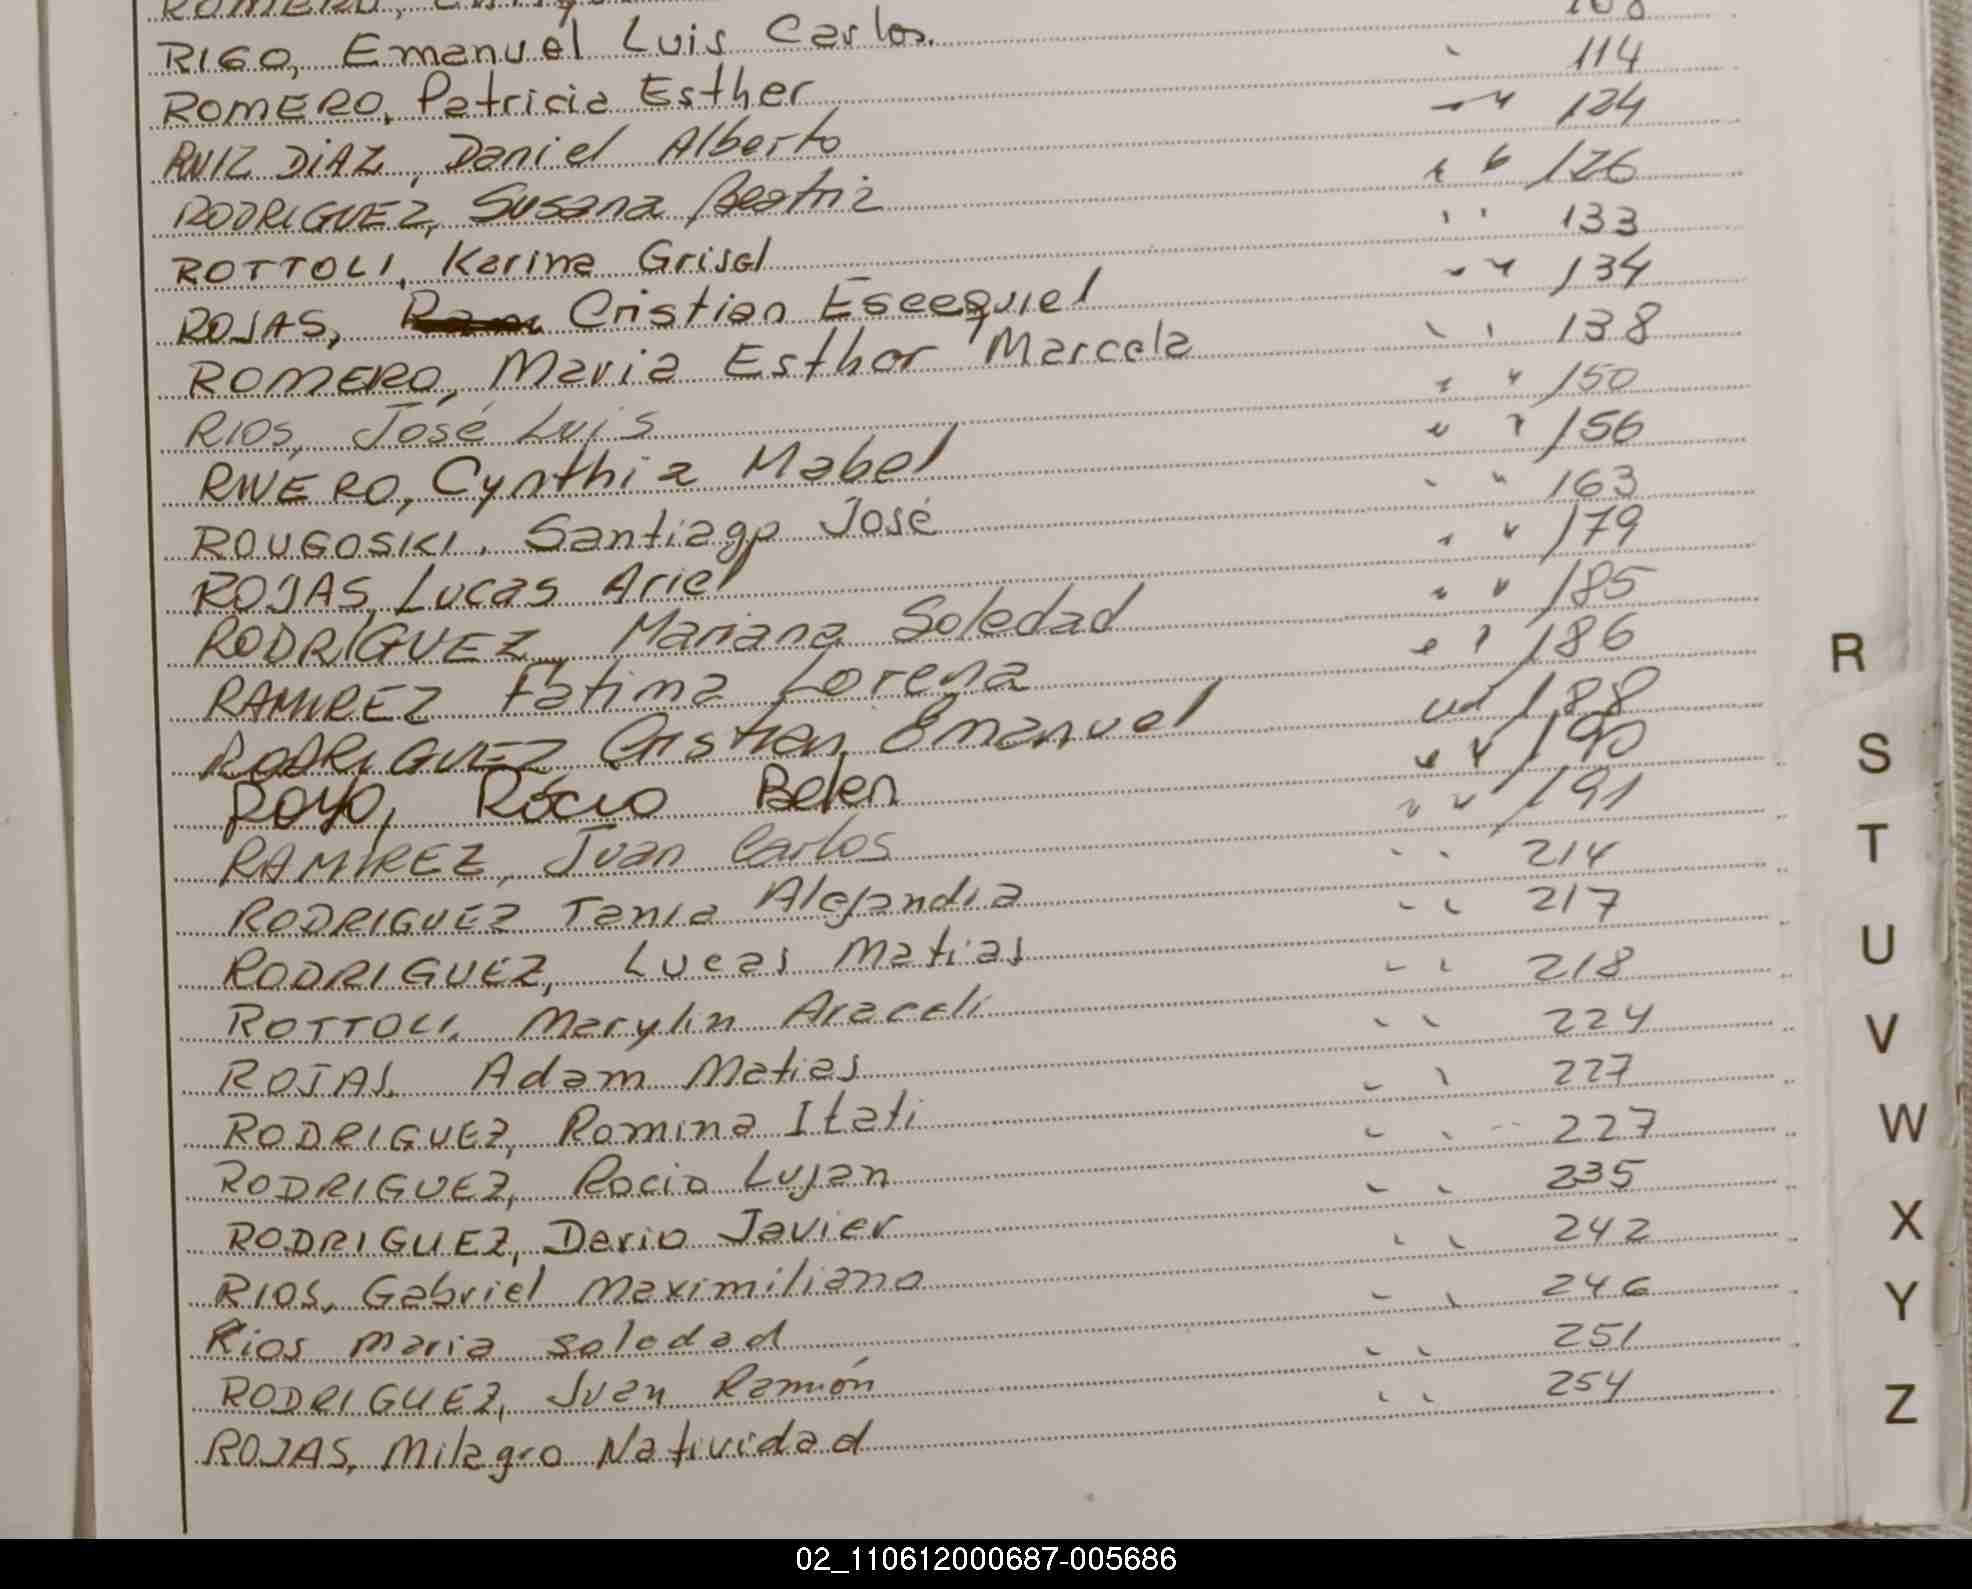 ROMERO,
RIGO, Emanuel Luis Carlos. 108
ROMERO, Patricia Esther " 114
RUIZ DIAZ, Daniel Alberto " " 124
RODRIGUEZ, Susana Beatriz " " 126
ROTTOLI, Karina Grisel " " 133
ROJAS, Cristian Eseequiel " " 134
ROMERO, Maria Esther Marcela " " 138
RIOS, José Luis " " 150
RIVERO, Cynthia Mabel " " 156
ROUGOSKI, Santiago José " " 163
ROJAS, Lucas Ariel " " 179
RODRIGUEZ, Mariana Soledad " " 185
RAMIREZ Fatima Lorena " " 186
RODRIGUEZ Cristian Emanuel " " 188
ROYO, Rocio Belen " " 190
RAMIREZ, Juan Carlos " " 191
RODRIGUEZ Tania Alejandra " " 214
RODRIGUEZ, Lucas Matias " " 217
ROTTOLI, Marylin Araceli " " 218
ROJAS, Adam Matias " " 224
RODRIGUEZ, Romina Itati " " 227
RODRIGUEZ, Rocio Lujan " " 227
RODRIGUEZ, Dario Javier " " 235
RIOS, Gabriel Maximiliano " " 242
Rios Maria Soledad " " 246
RODRIGUEZ, Juan Ramón " " 251
ROJAS, Milagro Natividad " " 254
R
S
T
U
V
W
X
Y
Z
02_110612000687-005686